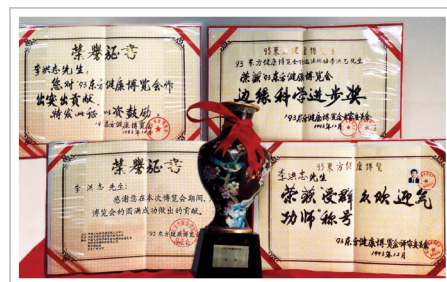 荣誉证书
李洪志先生:
您对'93东方健康博览会作
出突出贡献,
特发此证,以资鼓励
'93东方健康博览会
93东方健康博览会
李洪志先生
荣获'93东方健康博览会
边缘科学进步奖
'93东方健康博览会评审委员会
1993年12月
荣誉证书
李洪志先生:
感谢您在本次博览会期间,
博览会的圆满成功做出的贡献。
93东方健康博览
李洪志先生
荣获"受群众欢迎气
功师"称号
93东方健康博览会评审委员会
1993年12月